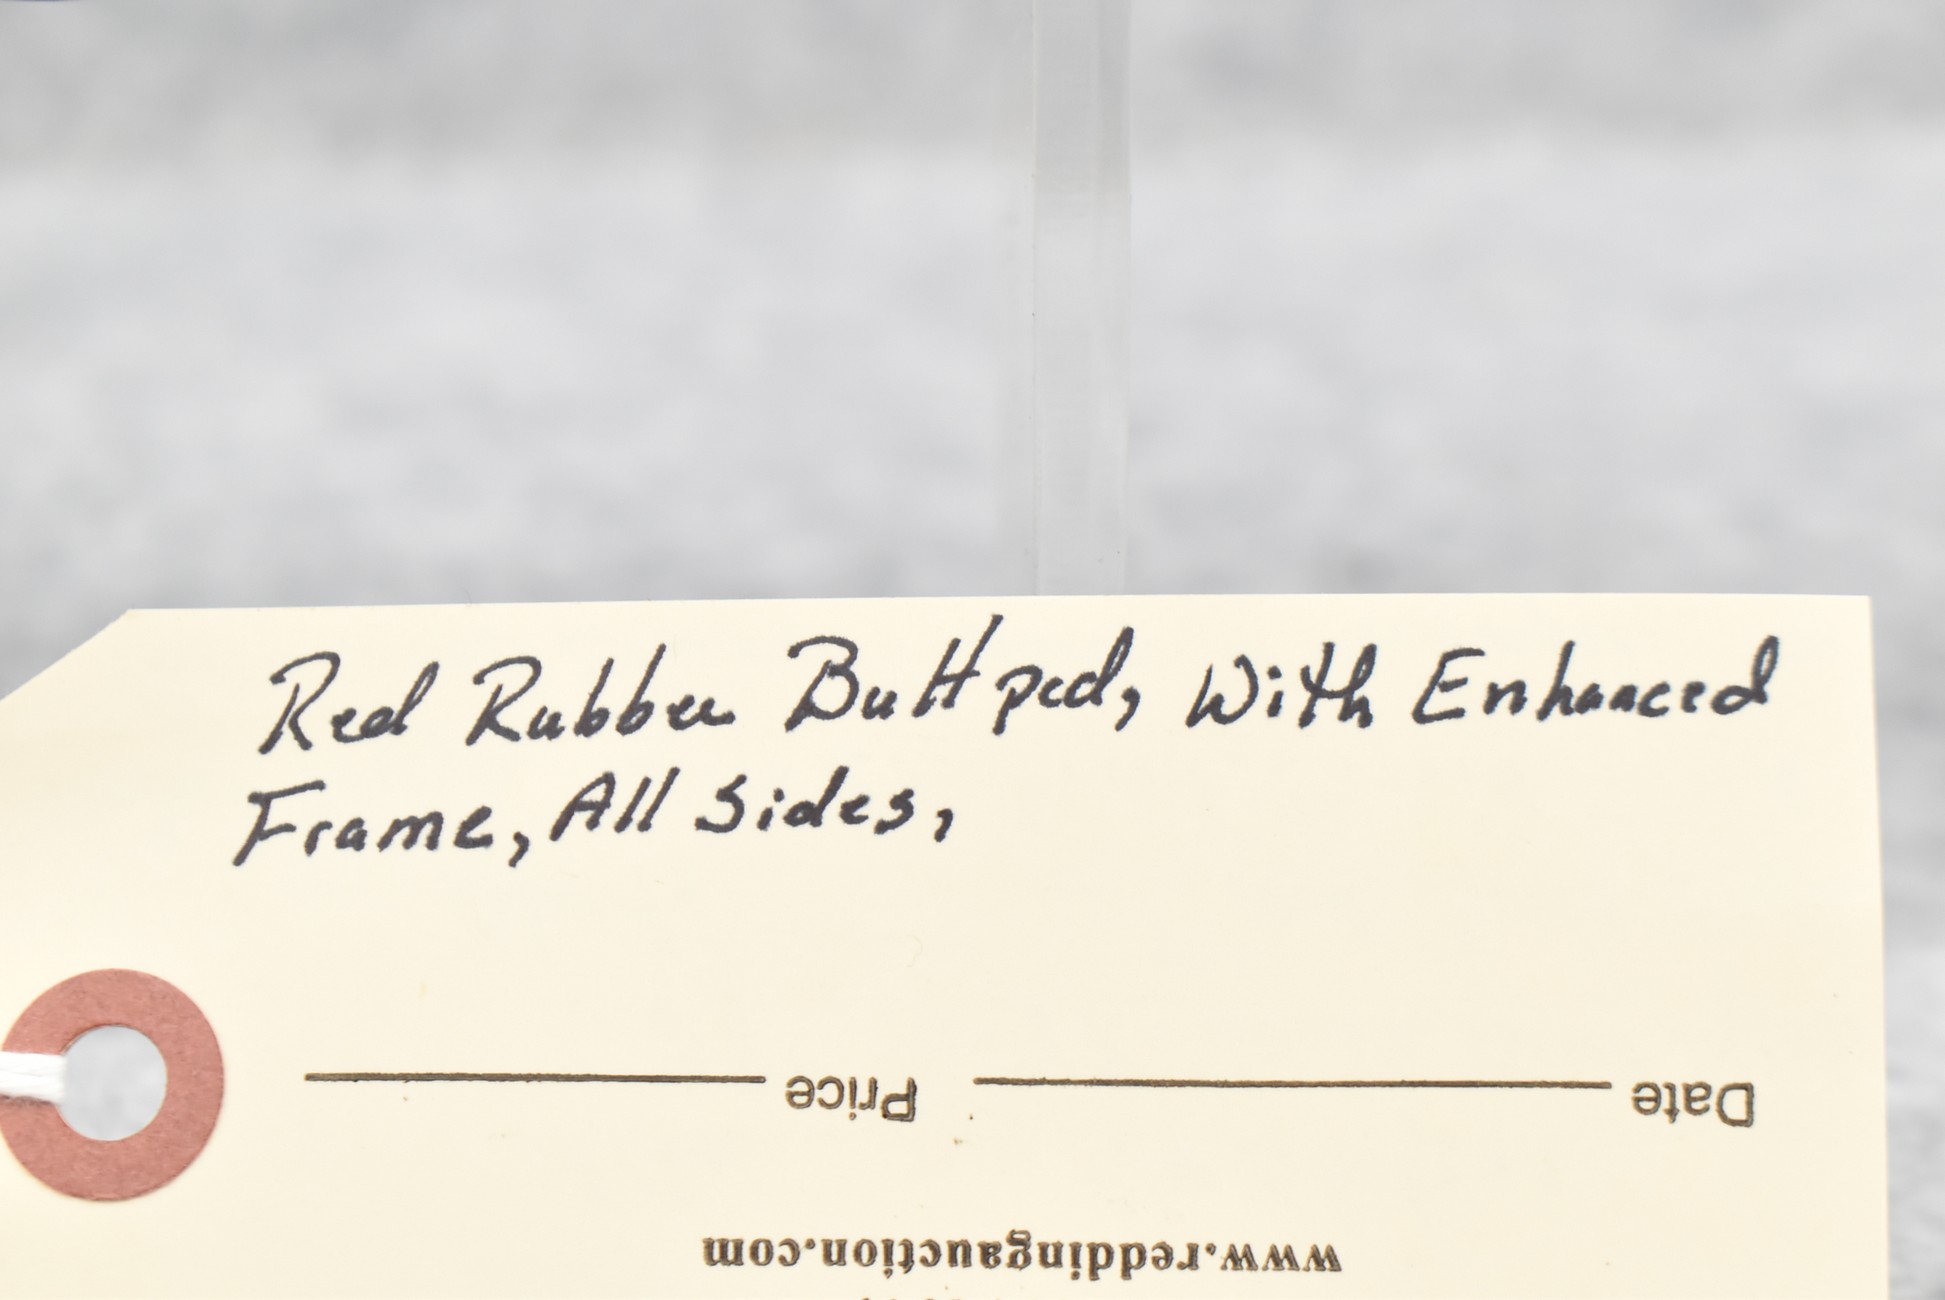 Red Rubber Butt pad, With Enhanced
Frame, All Sides,
Price
Date
www.reddingauction.com